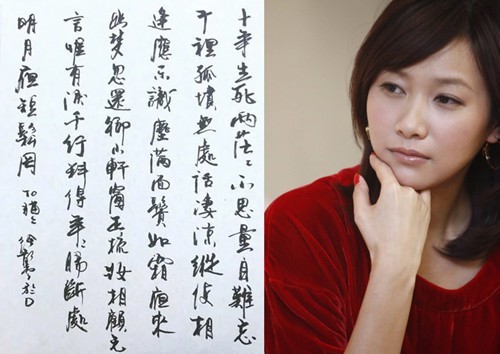 十年生死兩茫々不思量自難忘
千裡孤墳無處話淒涼縱使相
逢應不識塵滿面鬢如霜夜來
幽夢忽還鄉小軒窗正梳妝相顧无
言唯有淚千行料得年々腸斷處
明月夜短鬆岡